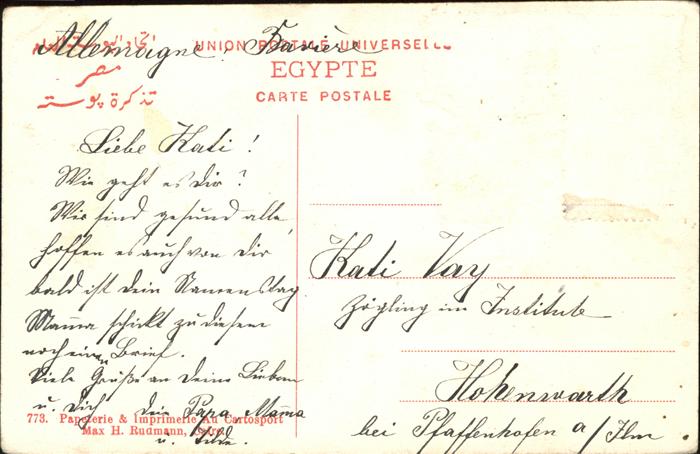 Allemagne. Bavière
UNION POSTALE UNIVERSELLE
EGYPTE
CARTE POSTALE
مصر
تذكرة پوسته
Liebe Kati!
Wie geht es Dir?
Wir sind gesund alle,
hoffen es auch von Dir
bald ist Dein Namenstag
Mama schickt zu diesem
noch einen Brief.
Viele Grüße an Deine Lieben
u. Dich Dein Papa Mama
u. Hilde.
Kati Vay
Zögling im Institute
Hohenwarth
bei Pfaffenhofen a/Ilm
773. Papeterie & Imprimerie Au Cartosport
Max H. Rudmann, Cairo